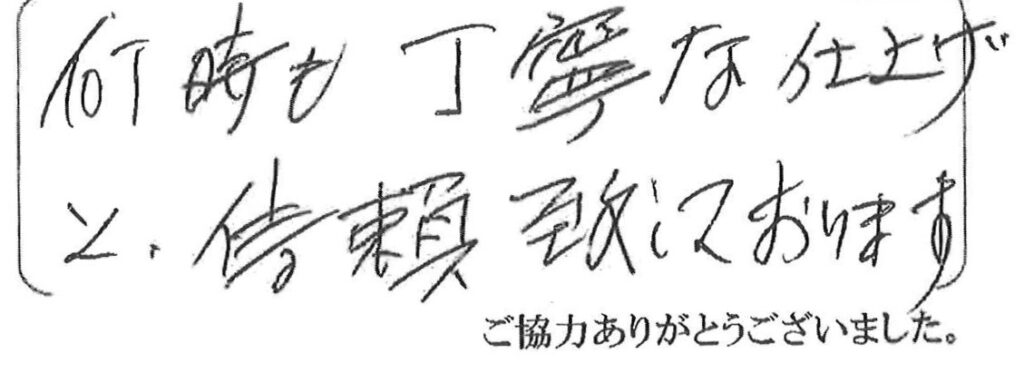 何時も丁寧な仕上げ
と、信頼致しております
ご協力ありがとうございました。